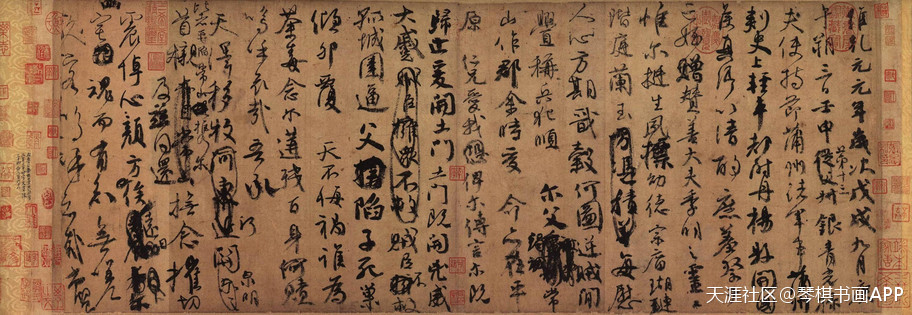 維乾元元年歲次戊戌九月庚
午朔三日壬申第十三叔銀青光祿
夫使持節蒲州諸軍事蒲州
刺史上輕車都尉丹楊縣開國
侯真卿以清酌庶羞祭于
亡姪贈贊善大夫季明之靈曰
惟爾挺生夙標幼德宗廟瑚璉
階庭蘭玉每慰
人心方期戩穀何圖逆賊間
釁稱兵犯順爾父竭誠常
山作郡余時受命亦在平
原仁兄愛我俾爾傳言爾既
歸止爰開土門土門既開凶威
大蹙賊臣不救
孤城圍逼父陷子死巢
傾卵覆天不悔禍誰為
荼毒念爾遘殘百身何贖
嗚呼哀哉吾承
天澤移牧河關泉明
比者再陷常山攜爾
首櫬及茲同還撫念摧切
震悼心顏方俟遠日
幽宅魂而有知無嗟
久客嗚呼哀哉尚饗
天涯社区@琴棋书画APP